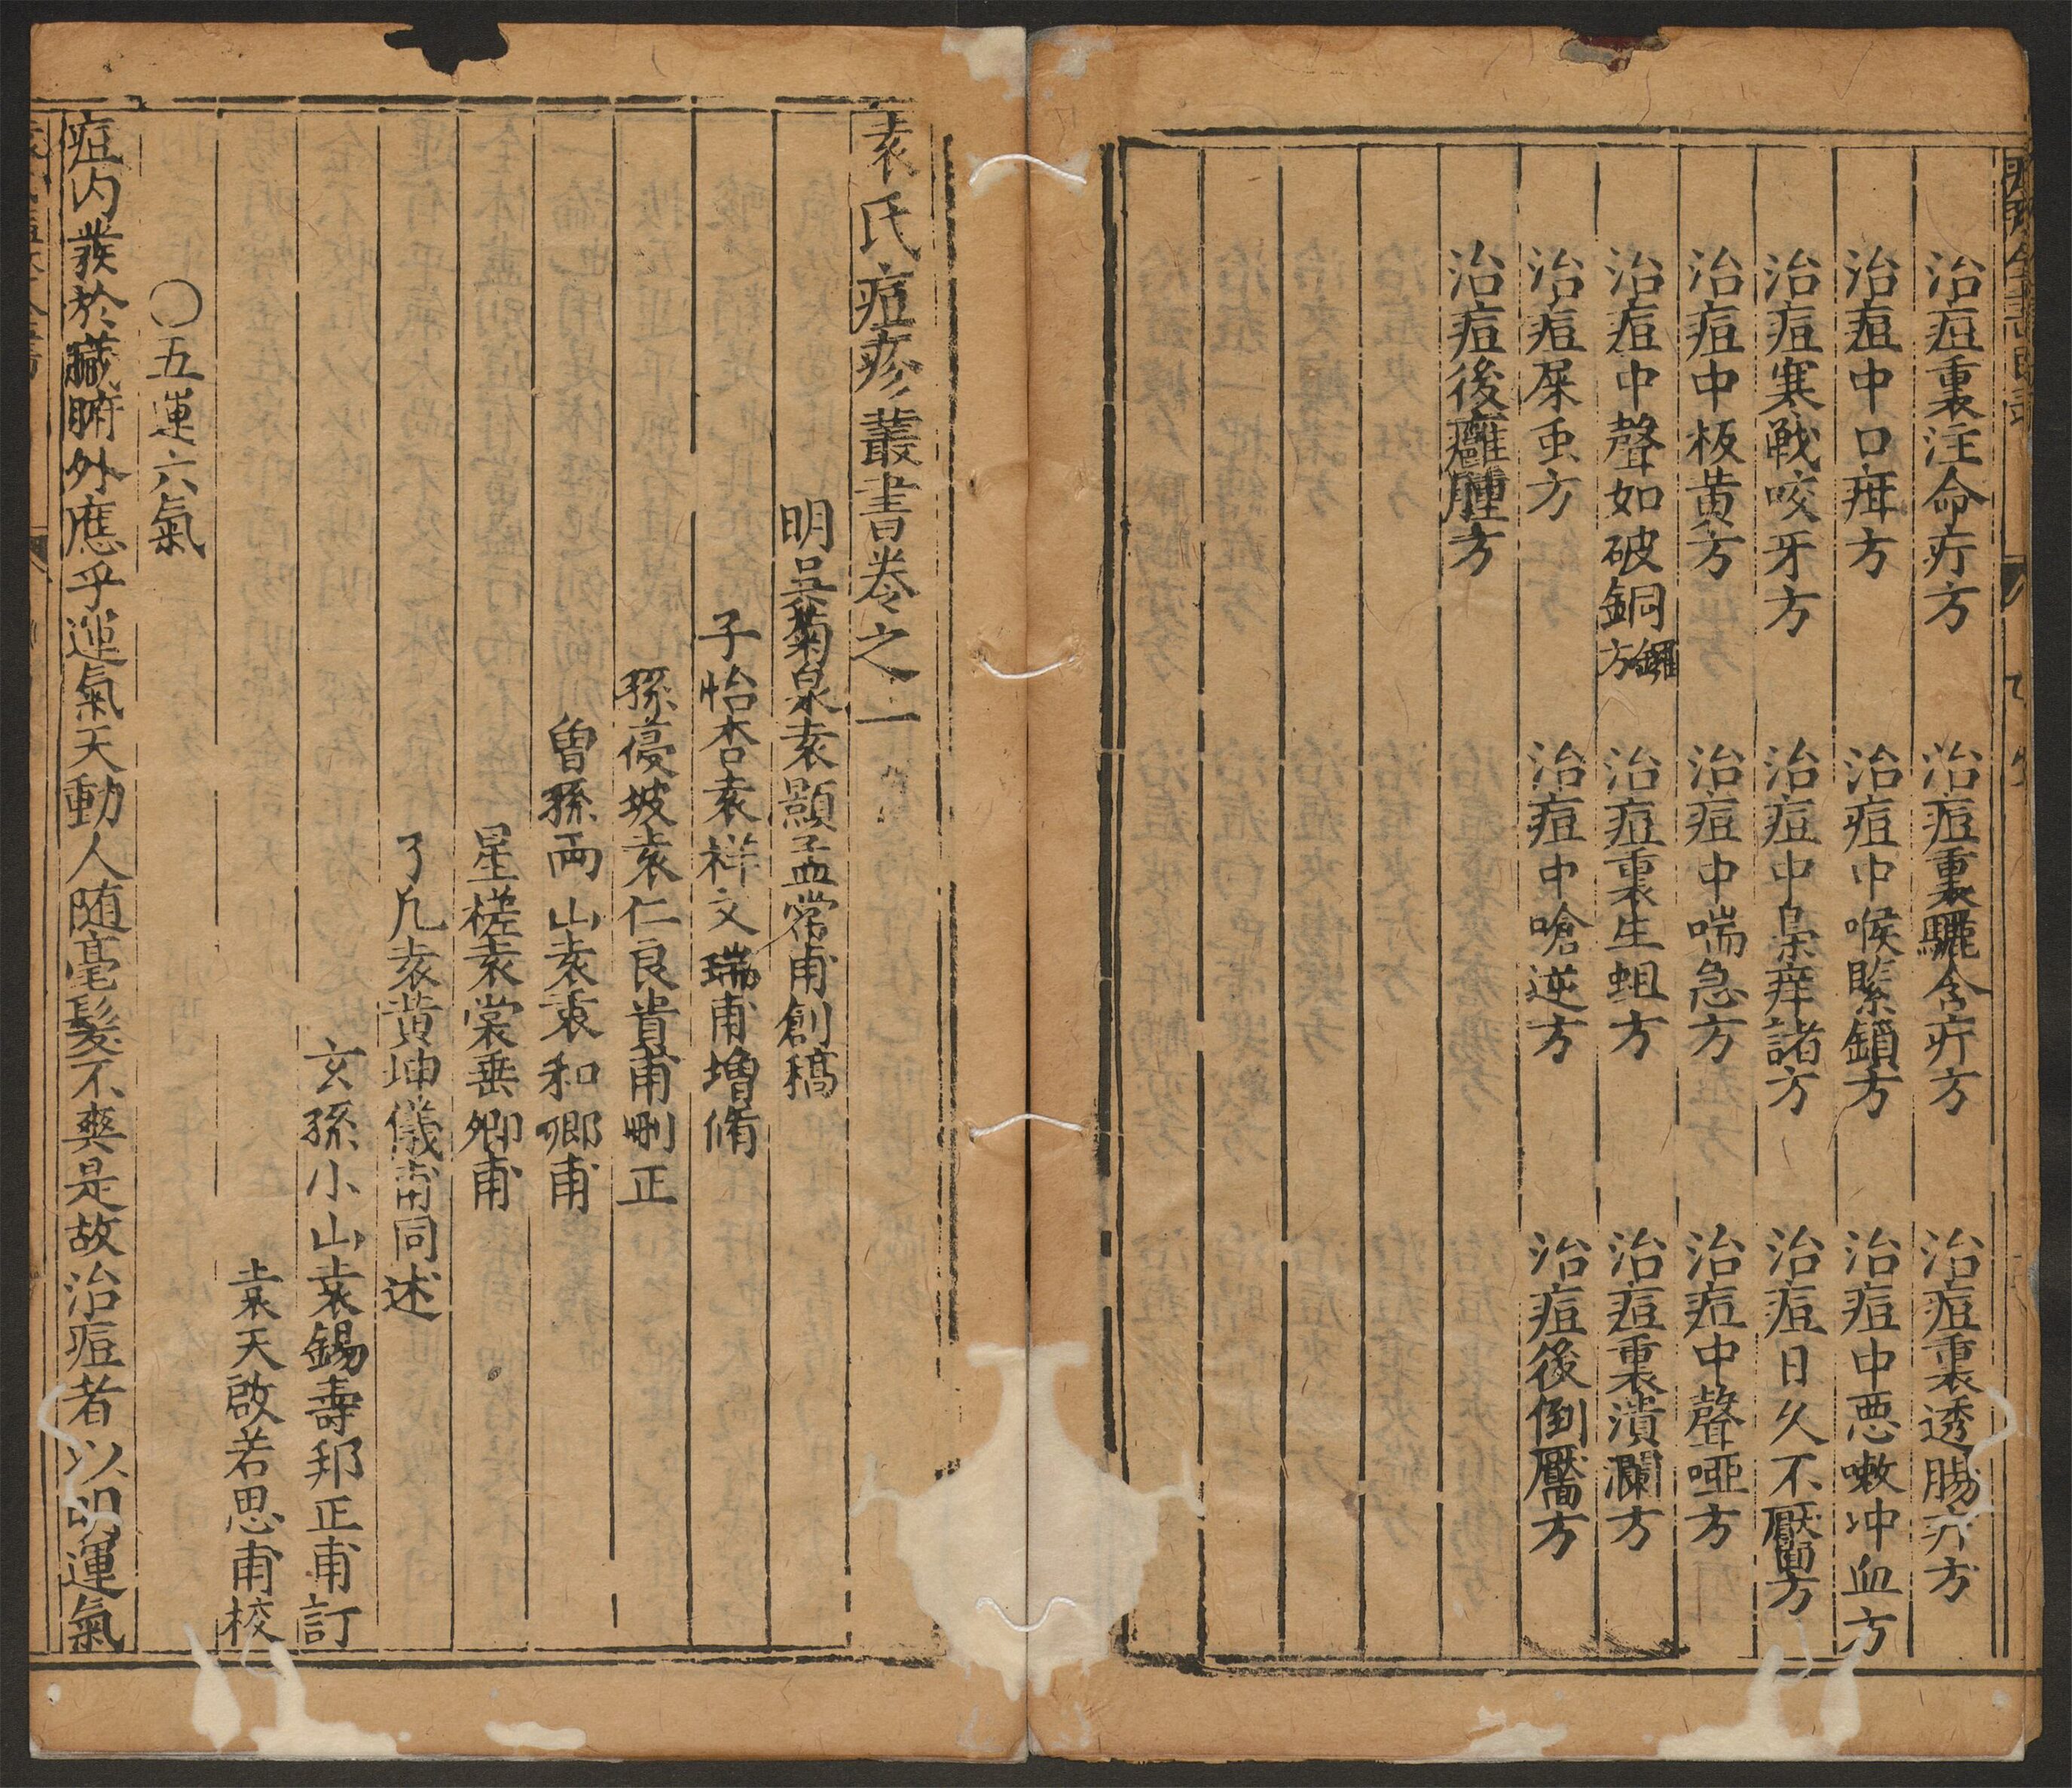 治痘裏注命疔方　治痘裏驪含疔方　治痘裏透腸疔方
治痘中口疳方　治痘中喉緊鎖方　治痘中悪嗽冲血方
治痘寒戰咬牙方　治痘中梟痒諸方　治痘日久不靨方
治痘中板黄方　治痘中喘急方　治痘中聲啞方
治痘中聲如破銅鑼方　治痘裏生蛆方　治痘裏潰瀾方
治痘屎虫方　治痘中嗆逆方　治痘後倒靨方
治痘後癰腫方
袁氏痘疹叢書卷之一
明吳菊泉袁顥孟常甫創稿
子怡杏袁祥文瑞甫增脩
孫葠坡袁仁良貴甫刪正
曾孫兩山袁衷和卿甫
星槎袁裳垂卿甫
了凡袁黄坤儀甫同述
玄孫小山袁錫壽邦正甫訂
袁天啟若思甫校
○五運六氣
痘內發於臟腑外應乎運氣天動人随毫髮不爽是故治痘者以明運氣